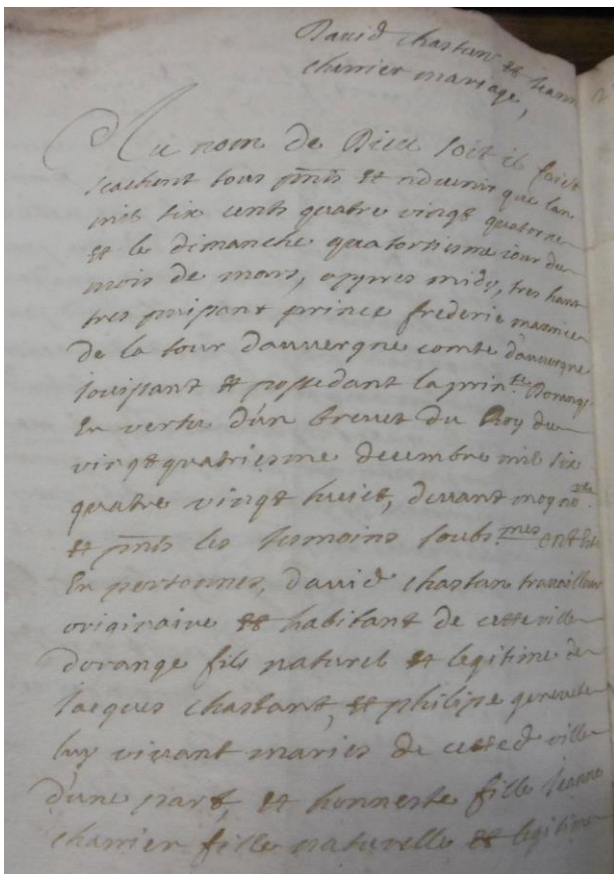 David chastan et Jeanne
charrier mariage,
Au nom de Dieu soit il faict
scachent tous pnts et advenir que lan
mil six cents quatre vingt quatorze
et le dimanche quatorziesme jour du
mois de mars, appres midy, tres haut
tres puissant prince frederic maurice
de la tour dauvergne comte dauvergne
jouissant et possedant la prin.te Dorange
En vertu d'un brevet du Roy du
vingtquatriesme decembre mil six
quatre vingt huict, devant moy no.re
et pnts les temoins soubs.nes
En personnes, david chastan travailleur
originaire et habitant de cette ville
dorange fils naturel et legitime de
Jacques chastant, et philipe
luy vivant maries de cetted ville
d'une part, et honneste fille Jeanne
charrier fille naturelle et legitime